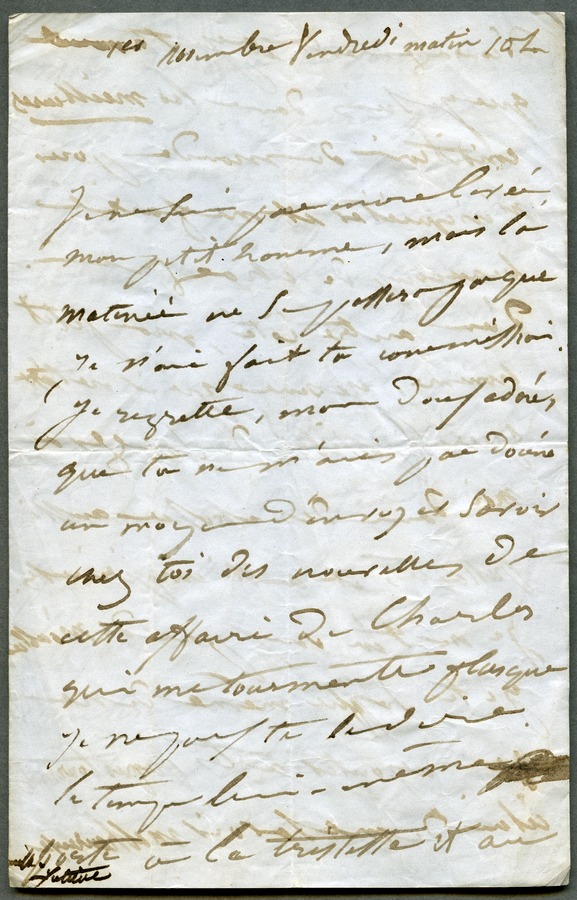 1er Novembre Vendredi matin 10 h
Je ne suis pas encore levée
mon petit homme, mais la
matinée ne se passera pas que
je n'aie fait ta commission.
Je regrette, mon doux adoré,
que tu ne m'aies pas donné
un moyen d'envoyer savoir
chez toi des nouvelles de
cette affaire de Charles
qui me tourmente plus que
je ne peux te le dire.
le temps lui-même
porte à la tristesse et au